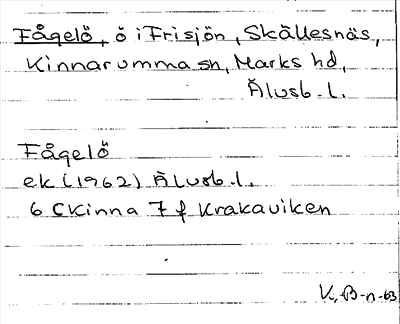 Fågelö, ö i Frisjön, Skällesnäs,
Kinnarumma sn, Marks hd,
Älvsb. l.
Fågelö
ek (1962) Älvsb. l.
6 C Kinna 7 f Krakaviken
K. B-n-63